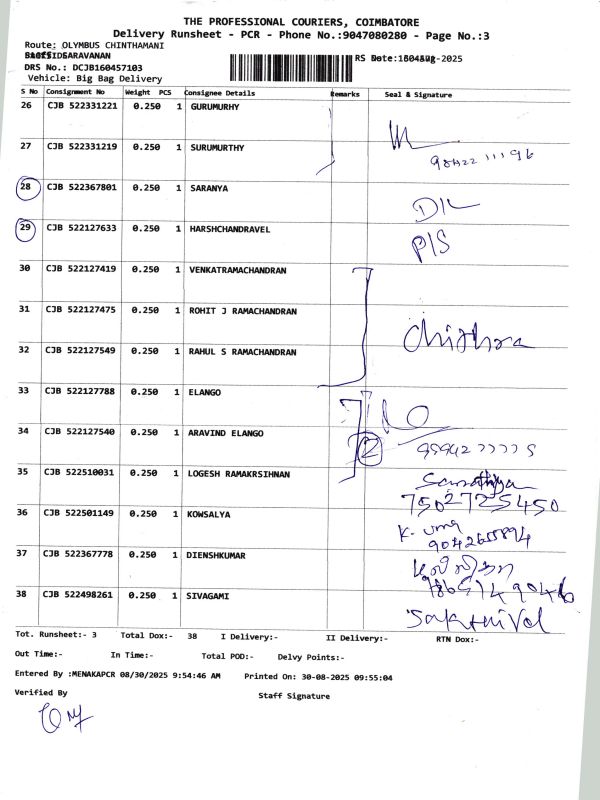 THE PROFESSIONAL COURIERS, COIMBATORE
Delivery Runsheet - PCR - Phone No.:9047080280 - Page No.:3
Route: OLYMBUS CHINTHAMANI
SARAVANAN
DRS No.: DCJB160457103
Vehicle: Big Bag Delivery
S No Consignment No Weight PCS Consignee Details Remarks Seal & Signature
26 CJB 522331221 0.250 1 GURUMURHY
27 CJB 522331219 0.250 1 SURUMURTHY
28 CJB 522367801 0.250 1 SARANYA
D/L
29 CJB 522127633 0.250 1 HARSHCHANDRAVEL
P/S
30 CJB 522127419 0.250 1 VENKATRAMACHANDRAN
31 CJB 522127475 0.250 1 ROHIT J RAMACHANDRAN
Chithra
32 CJB 522127549 0.250 1 RAHUL S RAMACHANDRAN
33 CJB 522127788 0.250 1 ELANGO
34 CJB 522127540 0.250 1 ARAVIND ELANGO
2
35 CJB 522510031 0.250 1 LOGESH RAMAKRSIHNAN
7502725450
36 CJB 522501149 0.250 1 KOWSALYA
K. uma
37 CJB 522367778 0.250 1 DIENSHKUMAR
38 CJB 522498261 0.250 1 SIVAGAMI
Sakthivel
Tot. Runsheet:- 3 Total Dox:- 38 I Delivery:- II Delivery:- RTN Dox:-
Out Time:- In Time:- Total POD:- Delvy Points:-
Entered By :MENAKAPCR 08/30/2025 9:54:46 AM Printed On: 30-08-2025 09:55:04
Verified By Staff Signature